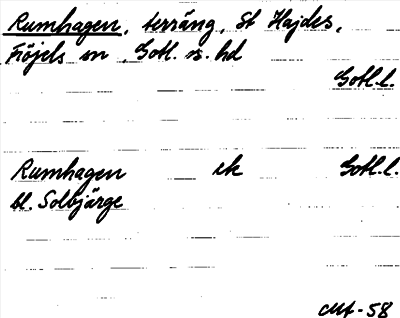 Rumhagen, terräng, St Hajdes,
Fröjels sn, Gotl. s. hd
Gotl.l.
Rumhagen ek Gotl.l.
bl. Solbjärge
CMf-58